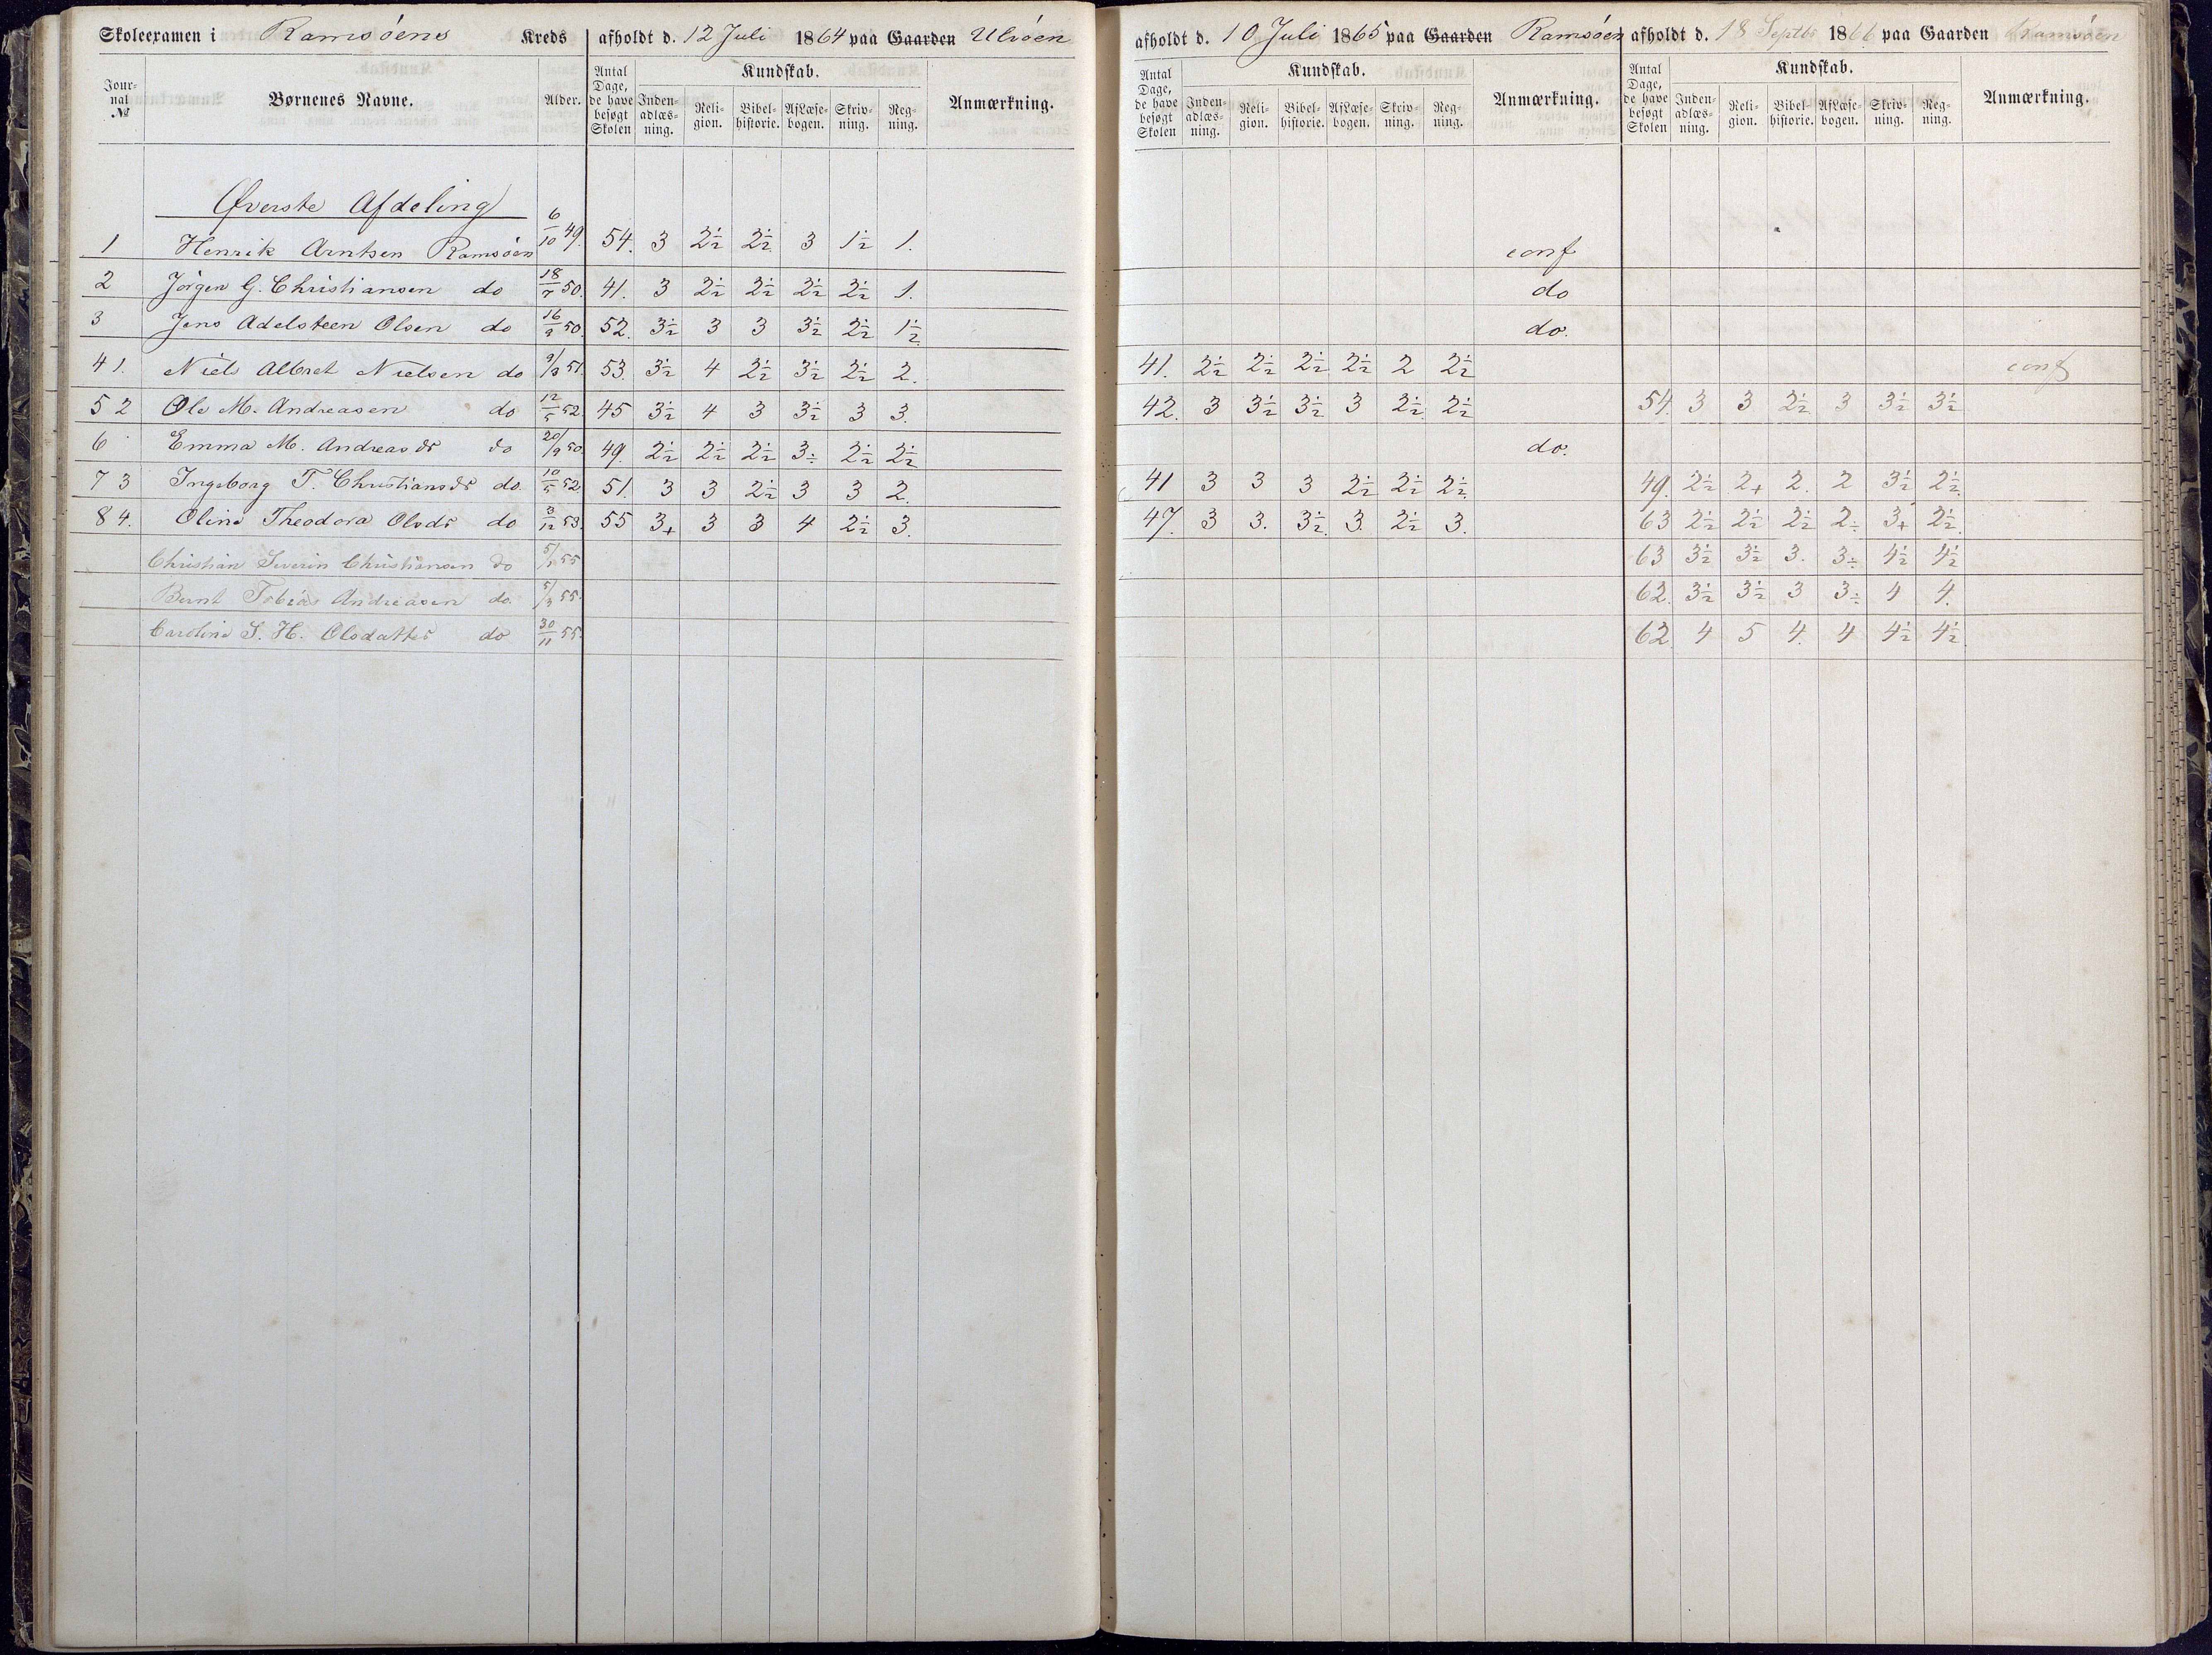 Skoleexamen i Ramsøens Kreds afholdt d. 12 Juli 1864 paa Gaarden Ulvøen afholdt d. 10 Juli 1865 paa Gaarden Ramsøen afholdt d. 18 Septbr 1866 paa Gaarden Ramsøen
Jour-nal № Børnenes Navne. Alder. Antal Dage, de have besøgt Skolen Kundskab. Inden-adlæs-ning. Reli-gion. Bibel-historie. AfLæse-bogen. Skriv-ning. Reg-ning. Anmærkning. Antal Dage, de have besøgt Skolen Kundskab. Inden-adlæs-ning. Reli-gion. Bibel-historie. AfLæse-bogen. Skriv-ning. Reg-ning. Anmærkning. Antal Dage, de have besøgt Skolen Kundskab. Inden-adlæs-ning. Reli-gion. Bibel-historie. AfLæse-bogen. Skriv-ning. Reg-ning. Anmærkning.
Øverste Afdeling
1 Henrik Arntsen Ramsøen 6/10 49. 54. 3 2½ 2½ 3 1½ 1. conf
2 Jørgen G. Christiansen do 18/7 50. 41. 3 2½ 2½ 2½ 2½ 1. do
3 Jens Adelsteen Olsen do 16/9 50. 52. 3½ 3 3 3½ 2½ 1½ do.
4 1. Niels Albret Nielsen do 9/8 51. 53. 3½ 4 2½ 3½ 2½ 2. 41. 2½ 2½ 2½ 2½ 2 2½ conf
5 2 Ole M. Andreasen do 12/5 52. 45 3½ 4 3 3½ 3 3. 42. 3 3½ 3½ 3 2½ 2½ 54. 3 3 2½ 3 3½ 3½
6 Emma M. Andreasdr do 20/9 50. 49. 2½ 2½ 2½ 3÷ 2½ 2½ do.
7 3 Ingeborg T. Christiansdr do. 10/5 52 51. 3 3 2½ 3 3 2. 41 3 3 3 2½ 2½ 2½ 49. 2½ 2+ 2. 2 3½ 2½
8 4. Oline Theodora Olsdr do 3/12 53. 55 3+ 3 3 4 2½ 3. 47. 3 3. 3½ 3. 2½ 3. 63 2½ 2½ 2½ 2÷ 3+ 2½
Christian Severin Christiansen do 5/1 55 63 3½ 3½ 3. 3÷ 4½ 4½
Bernt Tobias Andreasen do. 5/3 55. 62. 3½ 3½ 3 3÷ 4 4.
Caroline S. H. Olsdatter do 30/11 55. 62. 4 5 4. 4 4½ 4½